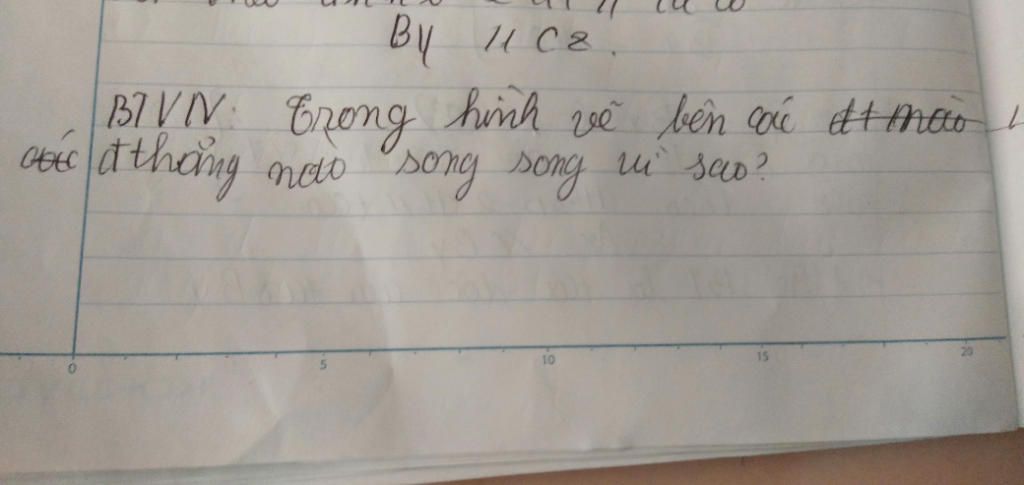 By // Cz.
BTVN: Trong hình vẽ bên các đt nào
các đthẳng nào song song vì sao?
0 5 10 15 20